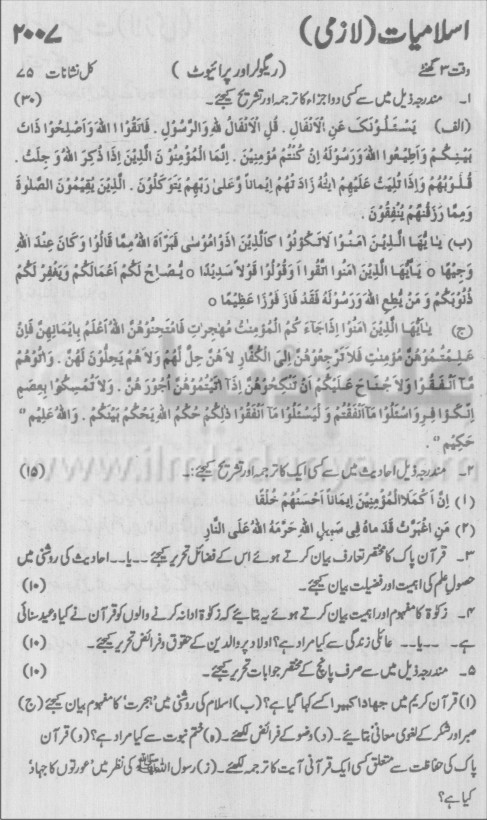 اسلامیات (لازمی) ۲۰۰۷
وقت ۳ گھنٹے (ریگولر اور پرائیوٹ) کل نشانات ۷۵
۱۔ مندرجہ ذیل میں سے کسی دو اجزاء کا ترجمہ اور تشریح کیجئے۔ (۳۰)
(الف) یَسْئَلُوْنَکَ عَنِ الْاَنْفَالِ . قُلِ الْاَنْفَالُ لِلّٰہِ وَالرَّسُوْلِ . فَاتَّقُوْا اللّٰہَ وَاَصْلِحُوْا ذَاتَ
بَیْنِکُمْ وَاَطِیْعُوا اللّٰہَ وَرَسُوْلَہٗ اِنْ کُنْتُمْ مُؤْمِنِیْنَ . اِنَّمَا الْمُؤْمِنُوْنَ الَّذِیْنَ اِذَا ذُکِرَ اللّٰہُ وَجِلَتْ .
قُلُوْبُھُمْ وَاِذَا تُلِیَتْ عَلَیْھِمْ اٰیٰتُہٗ زَادَتْھُمْ اِیْمَانًا وَّعَلٰی رَبِّھِمْ یَتَوَکَّلُوْنَ . الَّذِیْنَ یُقِیْمُوْنَ الصَّلٰوۃَ
وَمِمَّا رَزَقْنٰھُمْ یُنْفِقُوْنَ .
(ب) یٰاَیُّھَا الَّذِیْنَ اٰمَنُوْا لَاتَکُوْنُوْا کَالَّذِیْنَ اٰذَوْامُوْسٰی فَبَرَّاَہُ اللّٰہُ مِمَّا قَالُوْا وَکَانَ عِنْدَ اللّٰہِ
وَجِیْھًا o یٰٓاَیُّھَا الَّذِیْنَ اٰمَنُوا اتَّقُوا اللّٰہَ وَقُوْلُوْا قَوْلًا سَدِیْدًا o یُّصْلِحْ لَکُمْ اَعْمَالَکُمْ وَیَغْفِرْ لَکُمْ
ذُنُوْبَکُمْ وَ مَنْ یُّطِعِ اللّٰہَ وَرَسُوْلَہٗ فَقَدْ فَازَ فَوْزًا عَظِیْمًا o
(ج) یٰاَیُّھَا الَّذِیْنَ اٰمَنُوْا اِذَا جَاءَ کُمُ الْمُؤْمِنٰتُ مُھٰجِرٰتٍ فَامْتَحِنُوْھُنَّ اَللّٰہُ اَعْلَمُ بِاِیْمَانِھِنَّ فَاِنْ
عَلِمْتُمُوْھُنَّ مُؤْمِنٰتٍ فَلَا تَرْجِعُوْھُنَّ اِلَی الْکُفَّارِ لَاھُنَّ حِلٌّ لَّھُمْ وَلَاھُمْ یَحِلُّوْنَ لَھُنَّ . وَاٰتُوْھُمْ
مَّآ اَنْفَقُوْا وَلَا جُنَاحَ عَلَیْکُمْ اَنْ تَنْکِحُوْھُنَّ اِذَآ اٰتَیْتُمُوْھُنَّ اُجُوْرَ ھُنَّ . وَلَا تُمْسِکُوْا بِعِصَمِ
وَاسْئَلُوْا مَآ اَنْفَقْتُمْ وَ لْیَسْئَلُوْا مَآ اَنْفَقُوْا ذٰلِکُمْ حُکْمُ اللّٰہِ یَحْکُمُ بَیْنَکُمْ . وَاللّٰہُ عَلِیْمٌ
حَکِیْمٌ .
۲۔ مندرجہ ذیل احادیث میں سے کسی ایک کا ترجمہ اور تشریح کیجئے:۔ (۱۵)
(۱) اِنَّ اَکْمَلَ الْمُؤْمِنِیْنَ اِیْمَاناً اَحْسَنُھُمْ خُلْقًا
(۲) مَنِ اغْبَرَّتْ قَدَ مَاہُ فِی سَبِیْلِ اللّٰہِ حَرَّمَہُ اللّٰہُ عَلَی النَّارِ
۳۔ قرآن پاک کا مختصر تعارف بیان کرتے ہوئے اس کے فضائل تحریر کیجئے --- یا --- احادیث کی روشنی میں
حصول علم کی اہمیت اور فضیلت بیان کیجئے۔ (۱۰)
۴۔ زکوٰۃ کا مفہوم اور اہمیت بیان کرتے ہوئے یہ بتائیے کہ زکوٰۃ ادا نہ کرنے والوں کو قرآن نے کیا وعید سنائی
ہے۔ --- یا --- عائلی زندگی سے کیا مراد ہے؟ اولاد پر والدین کے حقوق و فرائض تحریر کیجئے۔ (۱۰)
۵۔ مندرجہ ذیل میں سے صرف پانچ کے مختصر جوابات تحریر کیجئے۔ (۱۰)
(۱) قرآن کریم میں جھاداً کبیراً کسے کہا گیا ہے؟ (ب) اسلام کی روشنی میں 'ہجرت' کا مفہوم بیان کیجئے (ج)
صبر اور شکر کے لغوی معانی بتائیے۔ (د) وضو کے فرائض لکھئے۔ (ہ) ختم نبوت سے کیا مراد ہے؟ (و) قرآن
پاک کی حفاظت سے متعلق کسی ایک قرآنی آیت کا ترجمہ لکھئے۔ (ز) رسول اللہ ﷺ کی نظر میں 'عورتوں کا جہاد'
کیا ہے؟